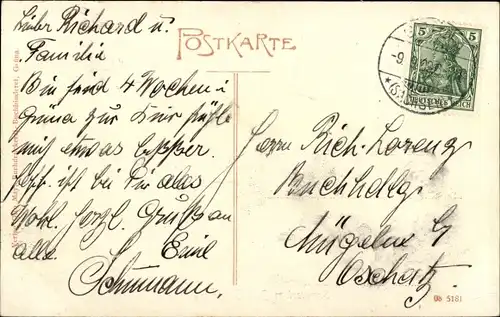 Lieber Richard u.
Familie
Bin seid 4 Wochen i
Grüna zur Kur fühle
mich etwas besser.
hoff. ist bei Dir alles
wohl. herzl. Gruß an
alle Emil
Schumann.
POSTKARTE
5 5
Herrn Rich. Lorenz
Buchhdlg.
Mügeln b/
Oschatz.
Ob 5181